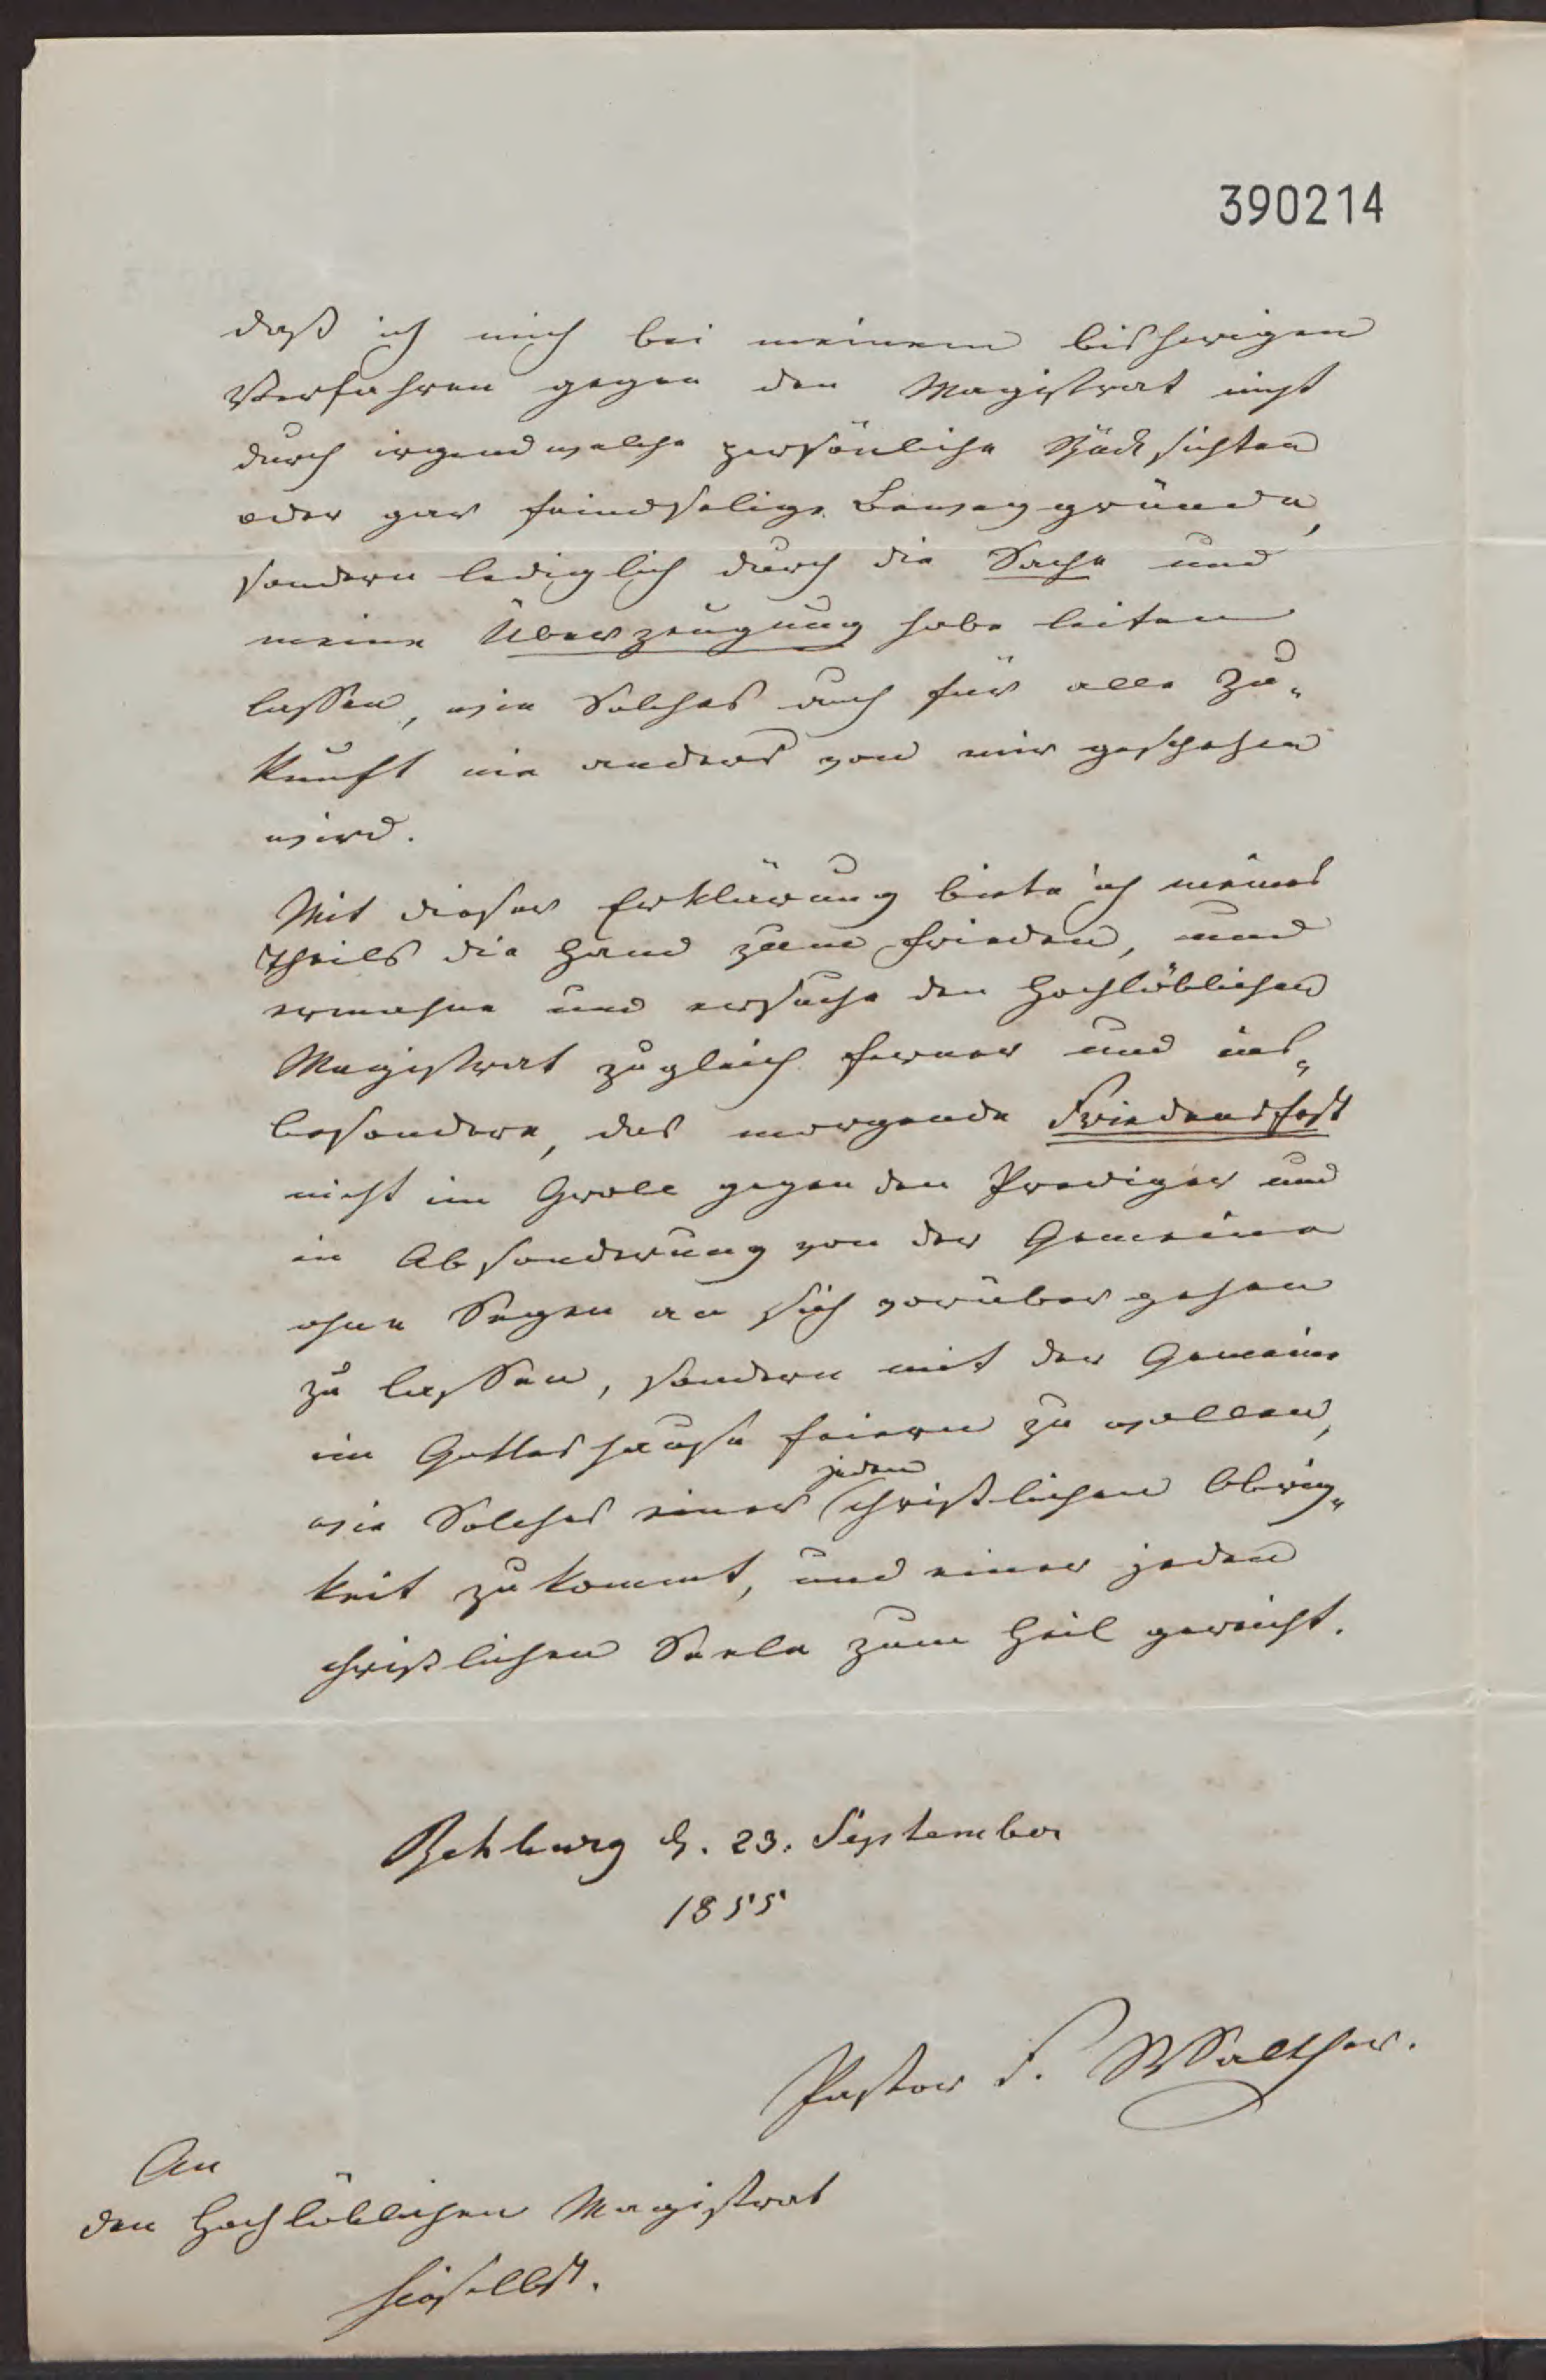 390214
daß ich mich bei meinem bisherigen
Verfahren gegen den Magistrat nicht
durch irgend welche persönliche Rücksichten
oder gar feindselige Beweggründe,
sondern lediglich durch die Sache und
meine Überzeugung habe leiten
lassen, wie Solches auch für alle Zu-
kunft nie anders von mir geschehen
wird.
Mit dieser Erklärung biete ich meines
Theils die Hand zum Frieden, und
ermahne und ersuche den Hochlöblichen
Magistrat zugleich ferner und ins-
besondere, das morgende Friedensfest
nicht im Groll gegen den Prediger und
in Absonderung von der Gemeine
ohne Segen an sich vorüber gehen
zu lassen, sondern mit der Gemeine
im Gotteshause feiern zu wollen,
wie Solches einer jeden christlichen Obrig-
keit zukommt, und einer jeden
christlichen Seele zum Heil gereicht.
Rehburg d. 23. September
1855
Pastor F. Walther.
An
den Hochlöblichen Magistrat
hieselbst.